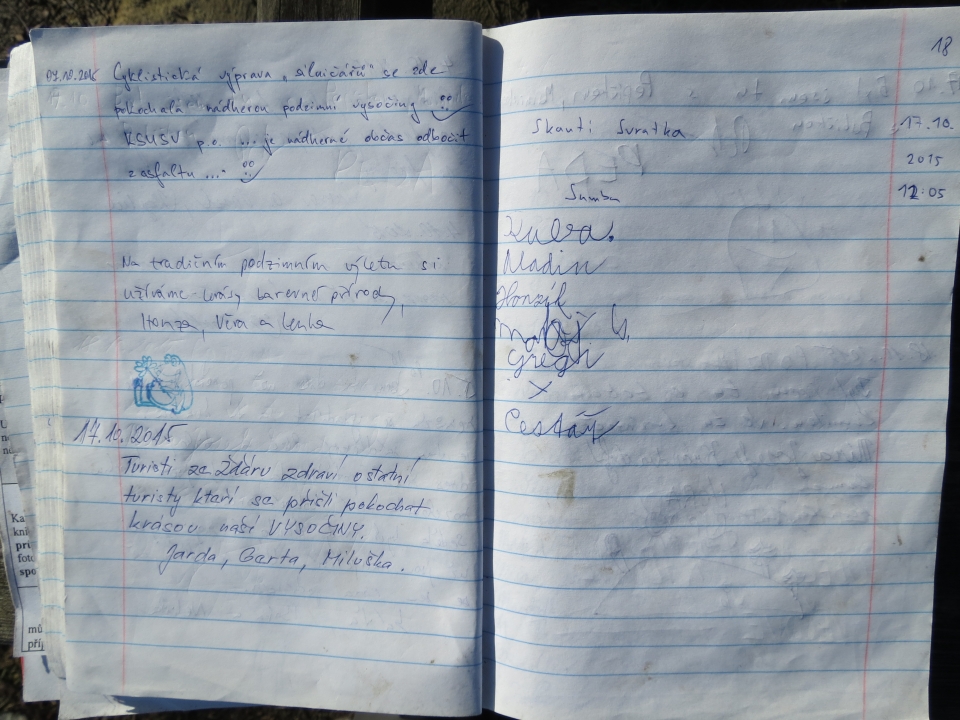 Cyklistická výprava „silničářů" se zde
pokochala nádherou podzimní vysočiny
KSÚSV p.o. ... je nádherné občas odbočit
z asfaltu ....
Na tradičním podzimním výletu si
užíváme krásy barevné přírody,
Honza, Věra a Lenka
17.10.2015
Turisti ze Žďáru zdraví ostatní
turisty kteří se přišli pokochat
krásou naší VYSOČINY.
Jarda, Barta, Miluška.
18
Skauti Svratka 17.10.
2015
12:05
Kuba.
Nadin
Honzík
Gregi
x
Cesťář
Ka
kni
pru
foto
spo
mů
příj